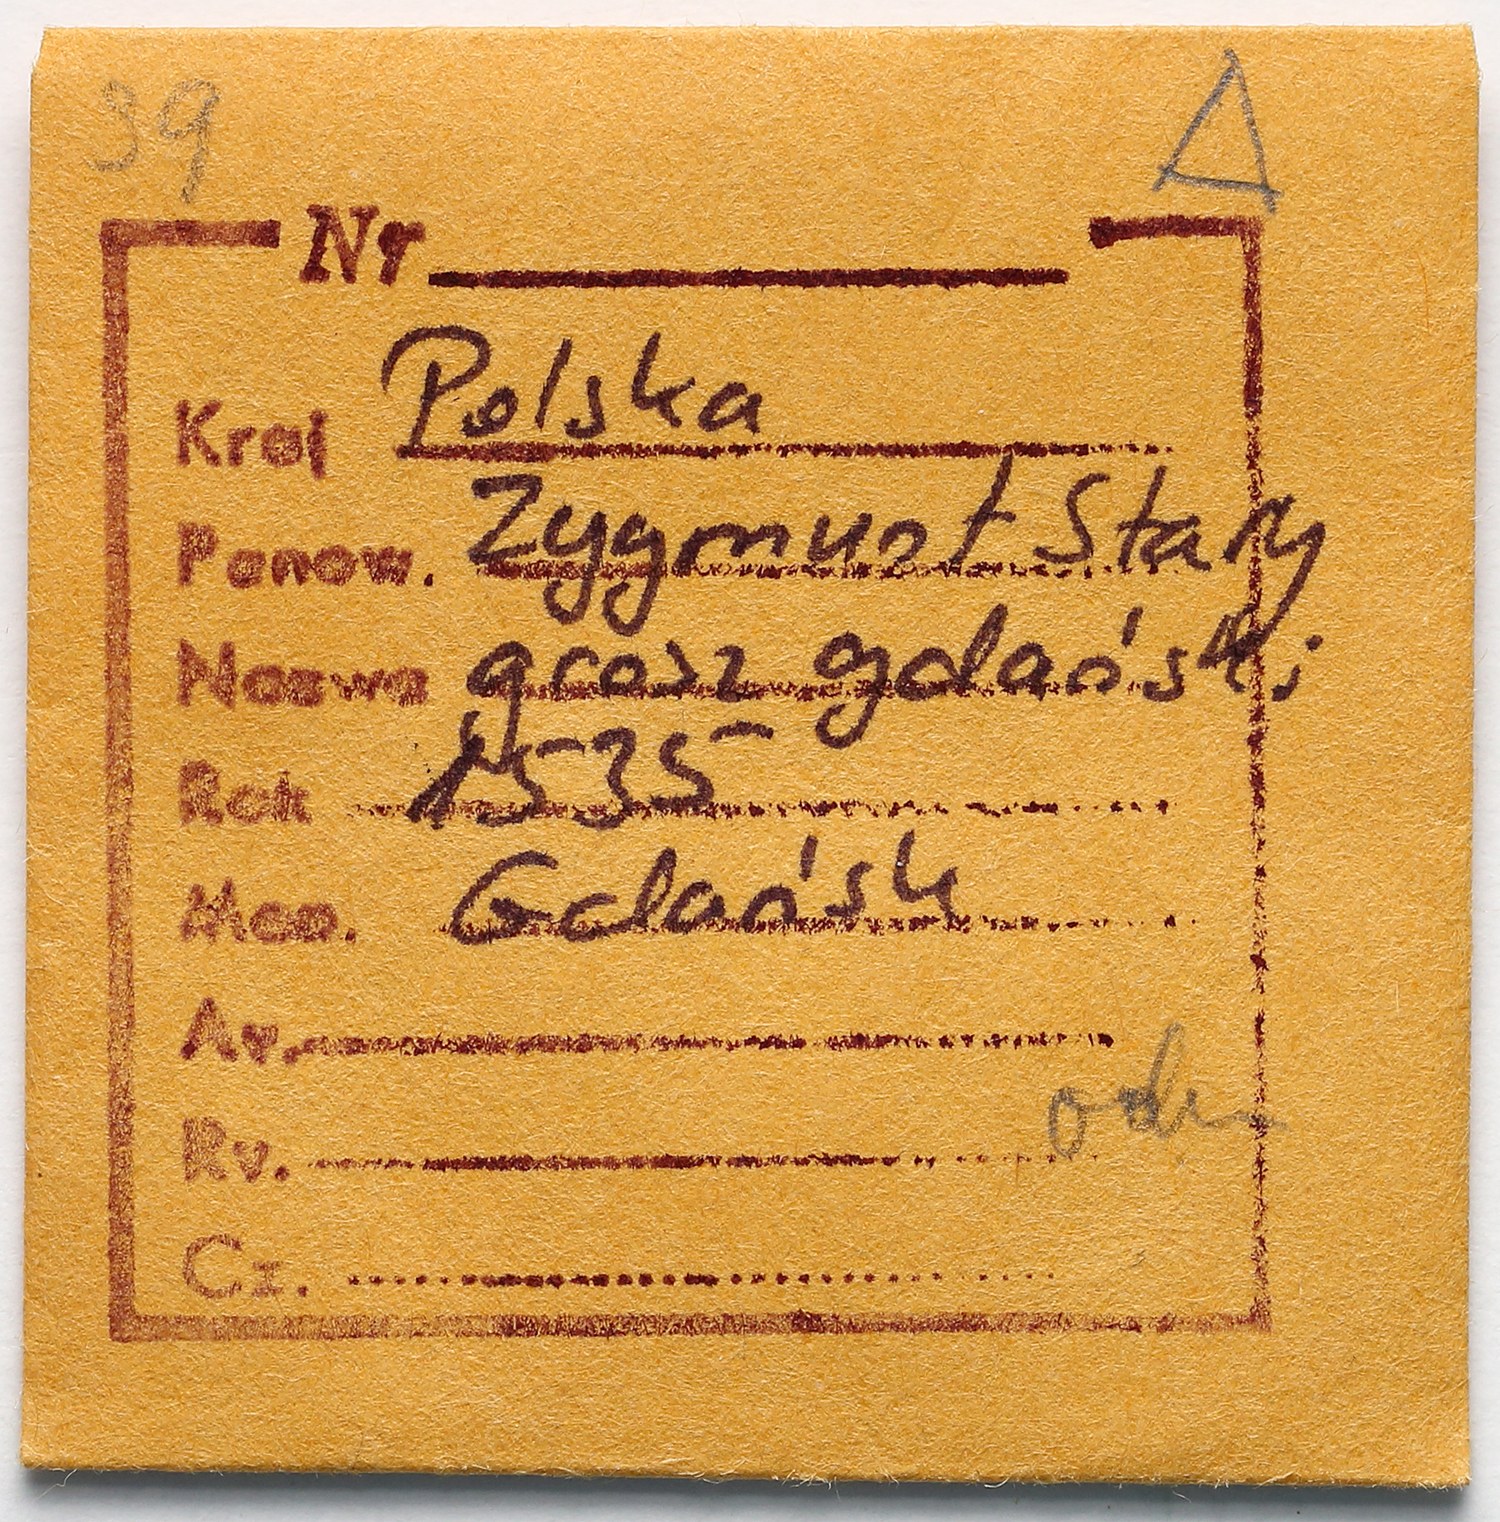 39
Nr
Kraj Polska
Panow. Zygmunt Stary
Nazwa grosz gdański
Rok 1535
Men. Gdańsk
Av.
Rv.
Cz.